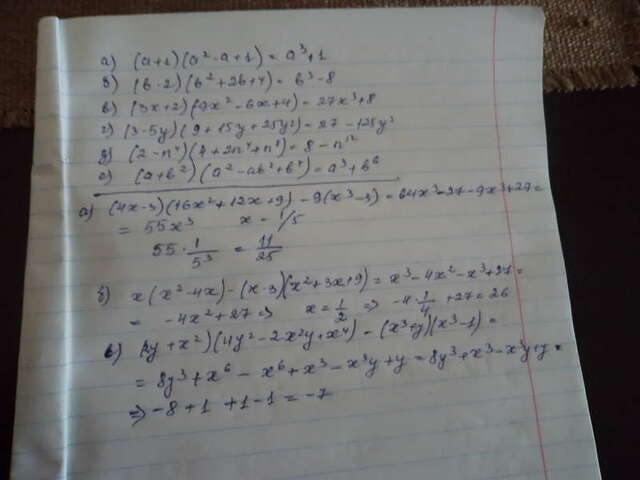 а) (a+1)(a²-a+1) = a³+1
б) (b-2)(b²+2b+4) = b³-8
в) (3x+2)(9x²-6x+4) = 27x³+8
г) (3-5y)(9+15y+25y²) = 27-125y³
д) (2-n⁴)(4+2n⁴+n⁸) = 8-n¹²
е) (a+b²)(a²-ab²+b⁴) = a³+b⁶
а) (4x-3)(16x²+12x+9) - 9(x³-3) = 64x³-27-9x³+27=
= 55x³ x = 1/5
55·1/5³ = 11/25
б) x(x²-4x)-(x-3)(x²+3x+9) = x³-4x²-x³+27=
= -4x²+27 ⇒ x=1/2 ⇒ -4·1/4+27=26
в) (2y+x²)(4y²-2x²y+x⁴) - (x³+y)(x³-1) =
= 8y³+x⁶-x⁶+x³-x³y+y = 8y³+x³-x³y+y=
⇒ -8+1+1-1=-7